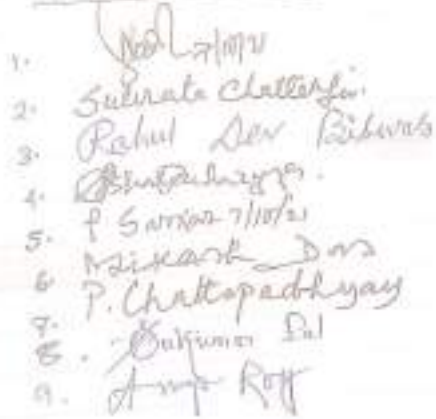 1. 7/10/21
2. Subrata Chatterjee.
3. Rahul Dev Biswas
4.
5. P Sarkar 7/10/21
6. Bikash Das
7. P. Chattopadhyay
8. Sukumar Pal
9. Roy